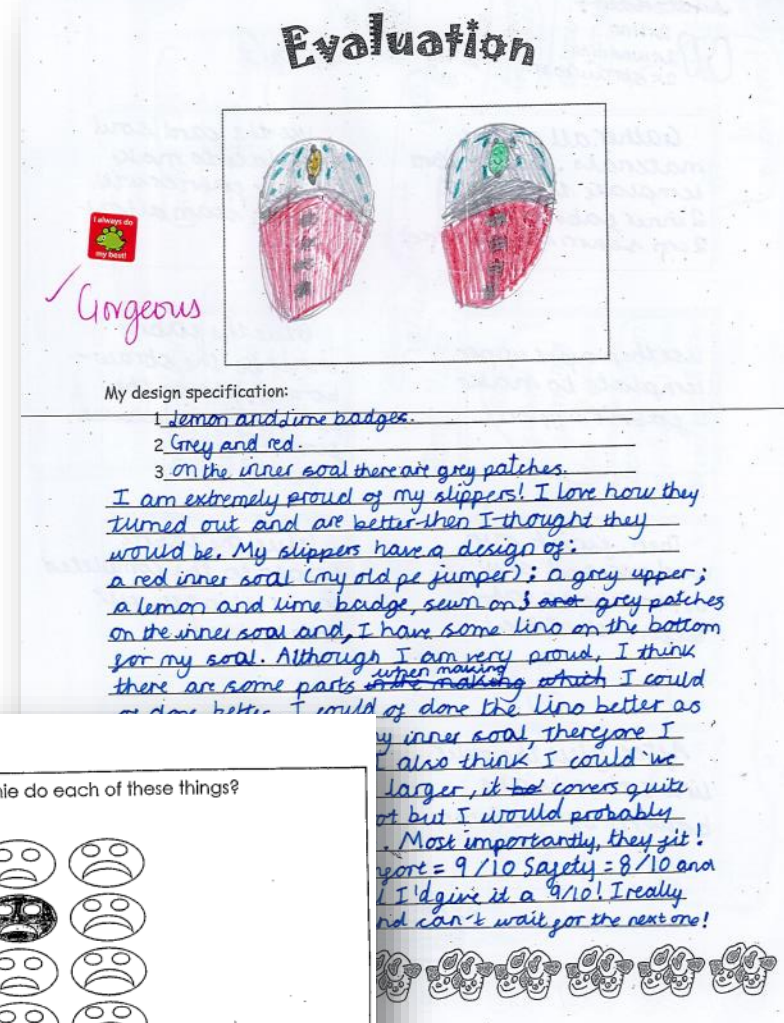 Evaluation
I always do
my best!
Gorgeous
My design specification:
1 Lemon and lime badges.
2 Grey and red.
3 on the inner soal there are grey patches.
I am extremely proud of my slippers! I love how they
turned out and are better then I thought they
would be. My slippers have a design of:
a red inner soal (my old pe jumper); a grey upper;
a lemon and lime badge, sewn on; and grey patches
on the inner soal and, I have some lino on the bottom
for my soal. Although I am very proud, I think
there are some parts in the making when making which I could
of done better. I could of done the lino better as
my inner soal, therefore I
I also think I could 've
larger, it covers quite
but I would probably
. Most importantly, they fit!
= 9/10 Safety = 8/10 and
I'd give it a 9/10! I really
can't wait for the next one!
do each of these things?